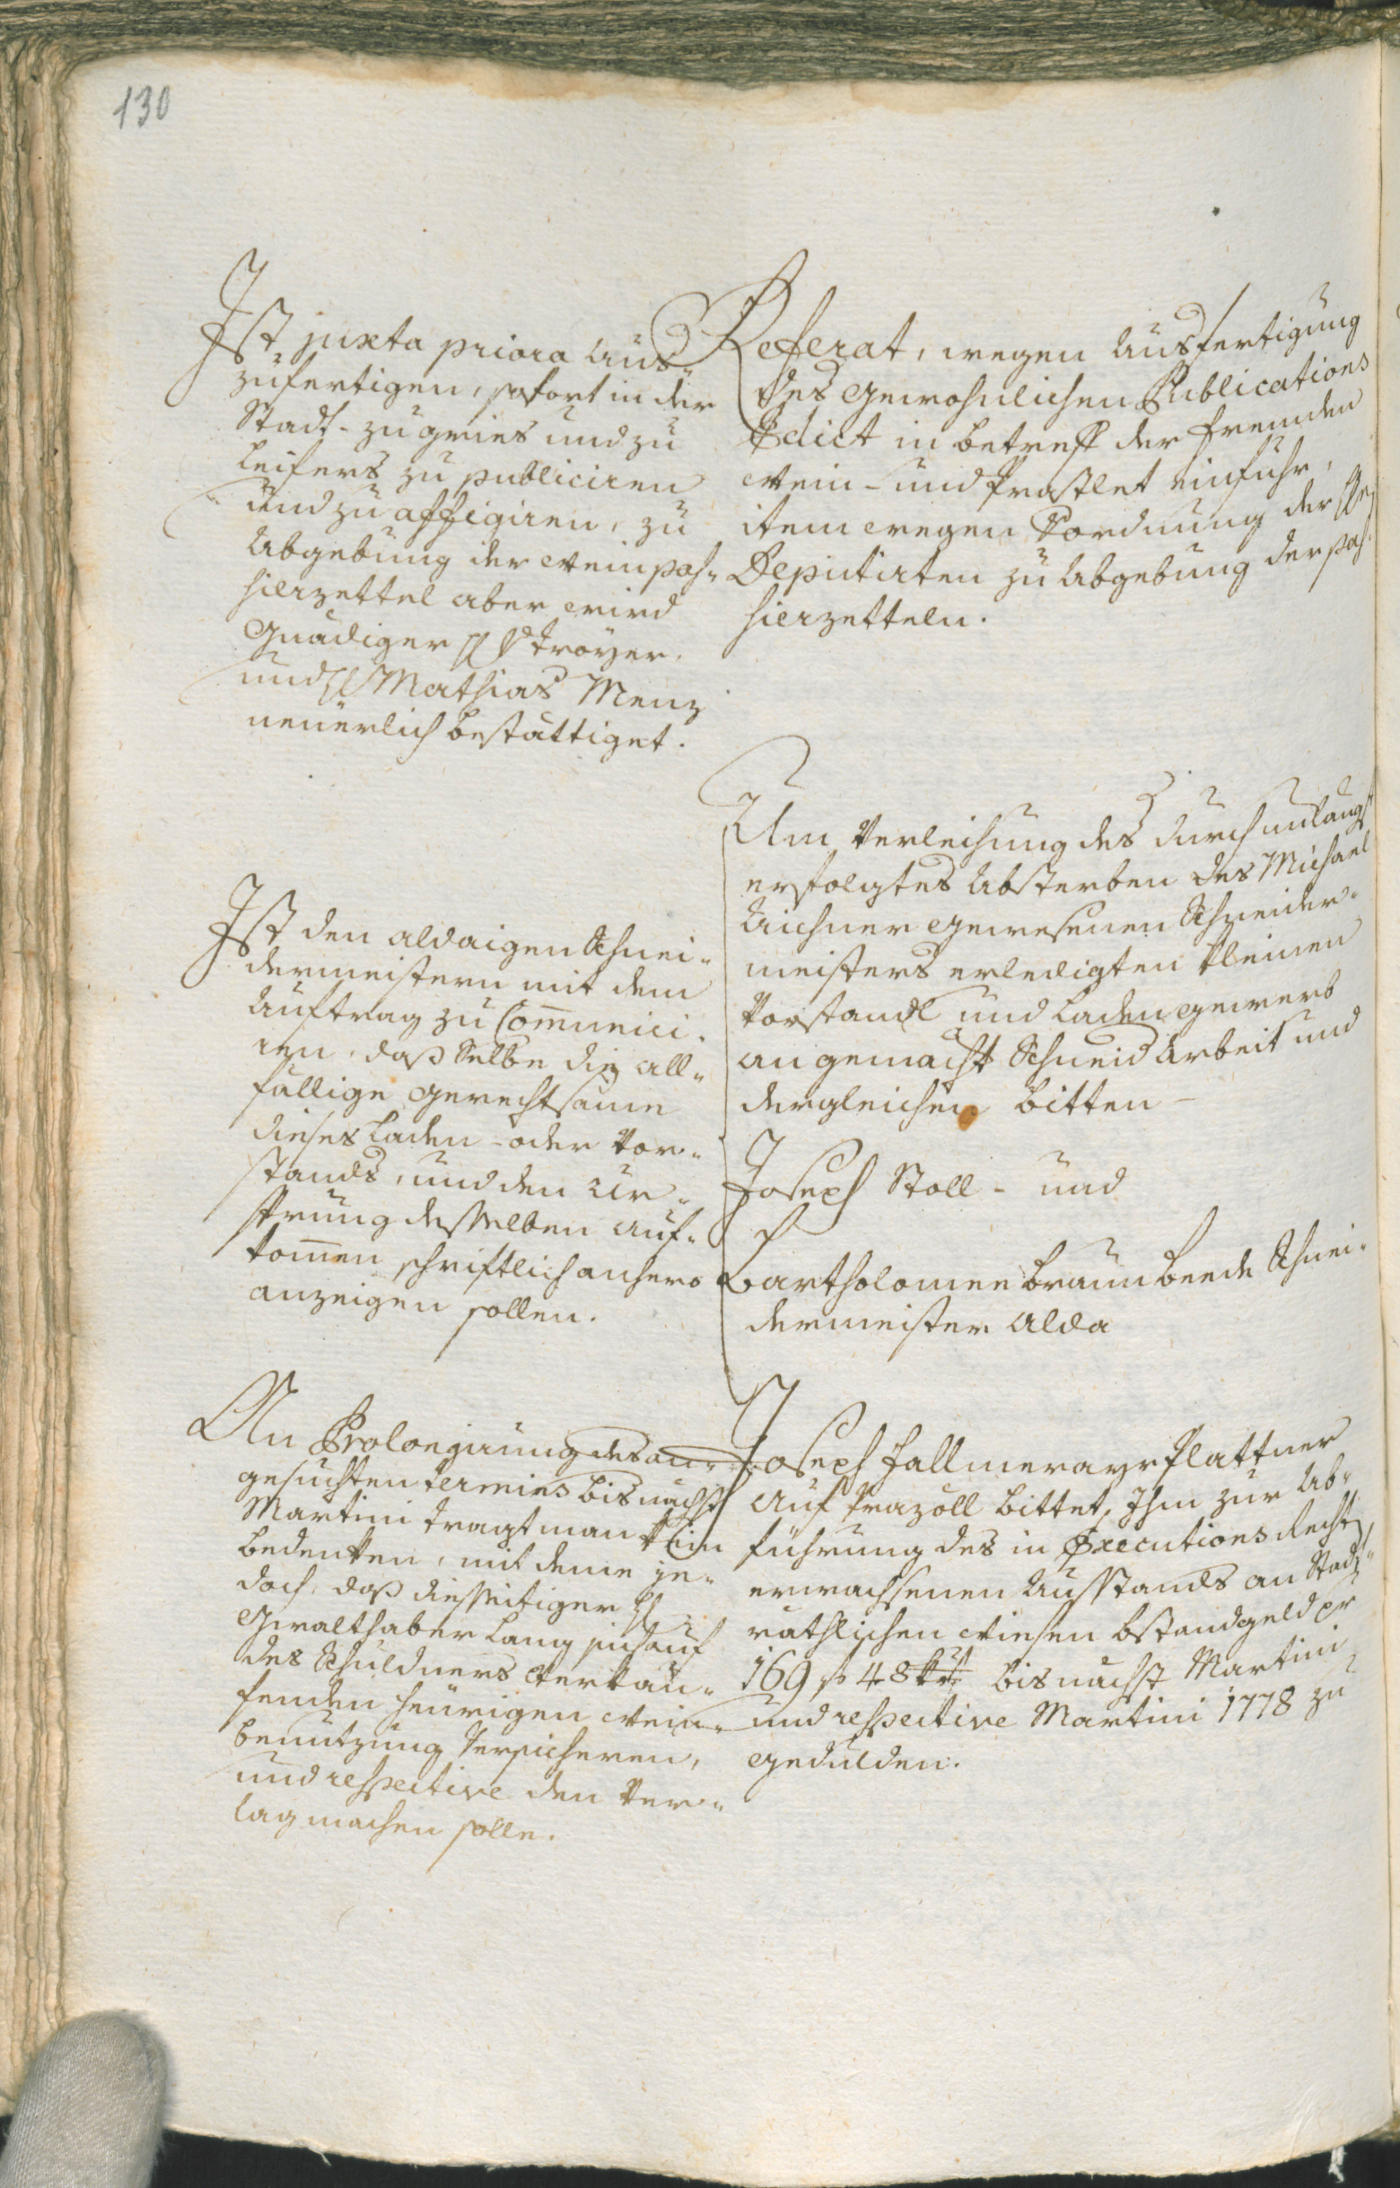 130
Ist juxta priora aus¬
zufertigen, sofort in der
Stadt- zu gries und zu
Leifers zu publiciren
und zu affigiren, zu
Abgebung der Weinpas¬
hierzettel aber wird
Gnädiger H Ströyer
und H Mathias Menz
neuerlich bestättiget.
Referat, wegen Ausfertigung
des gewohnlichen Publications
Edict in betreff der fremden
Wein- und Praslet einfuhr,
item wegen der
Deputirten zu Abgebung der pas¬
hierzetteln.
Ist den aldaigen Schnei¬
dermeistern mit dem
Auftrag zu Com̅unici¬
ren, daß Selbe die all¬
fällige Gerechtsame
dieses Laden- oder Vor¬
stands, und den Ur¬
sprung desselben auf¬
kom̅en schriftlich anhero
anzeigen sollen.
Um Verleihung des durch unlangst
erfolgtes Absterben des Michael
Aichner gewesenen Schneider¬
meisters erledigten kleinen
Vorstandl und Ladengewerb
an gemacht Schneid Arbeit und
dergleichen bitten –
Joseph Stoll – und
Bartholomee Braun beede Schnei¬
dermeister alda
An Prolongirung des an¬
gesuchten termins bis nächst
Martini tragt man kein
bedenken, mit deme je¬
doch, daß diesseitiger H
Gwalthaber Lang sich auf
des Schuldners verkau¬
fenden heurigen Wein¬
benutzung versicheren,
und respective den Ver¬
lag machen solle.
Joseph Fallmerayr Plattner
auf Prazöll bittet, Ihm zur Ab¬
führung des in Executions Recht
erwachsenen Ausstands an Stadt¬
räthlichen Wiesen bstandgeld pr
169 f 48 kr bis nächst Martini
und respective Martini 1778 zu
gedulden.